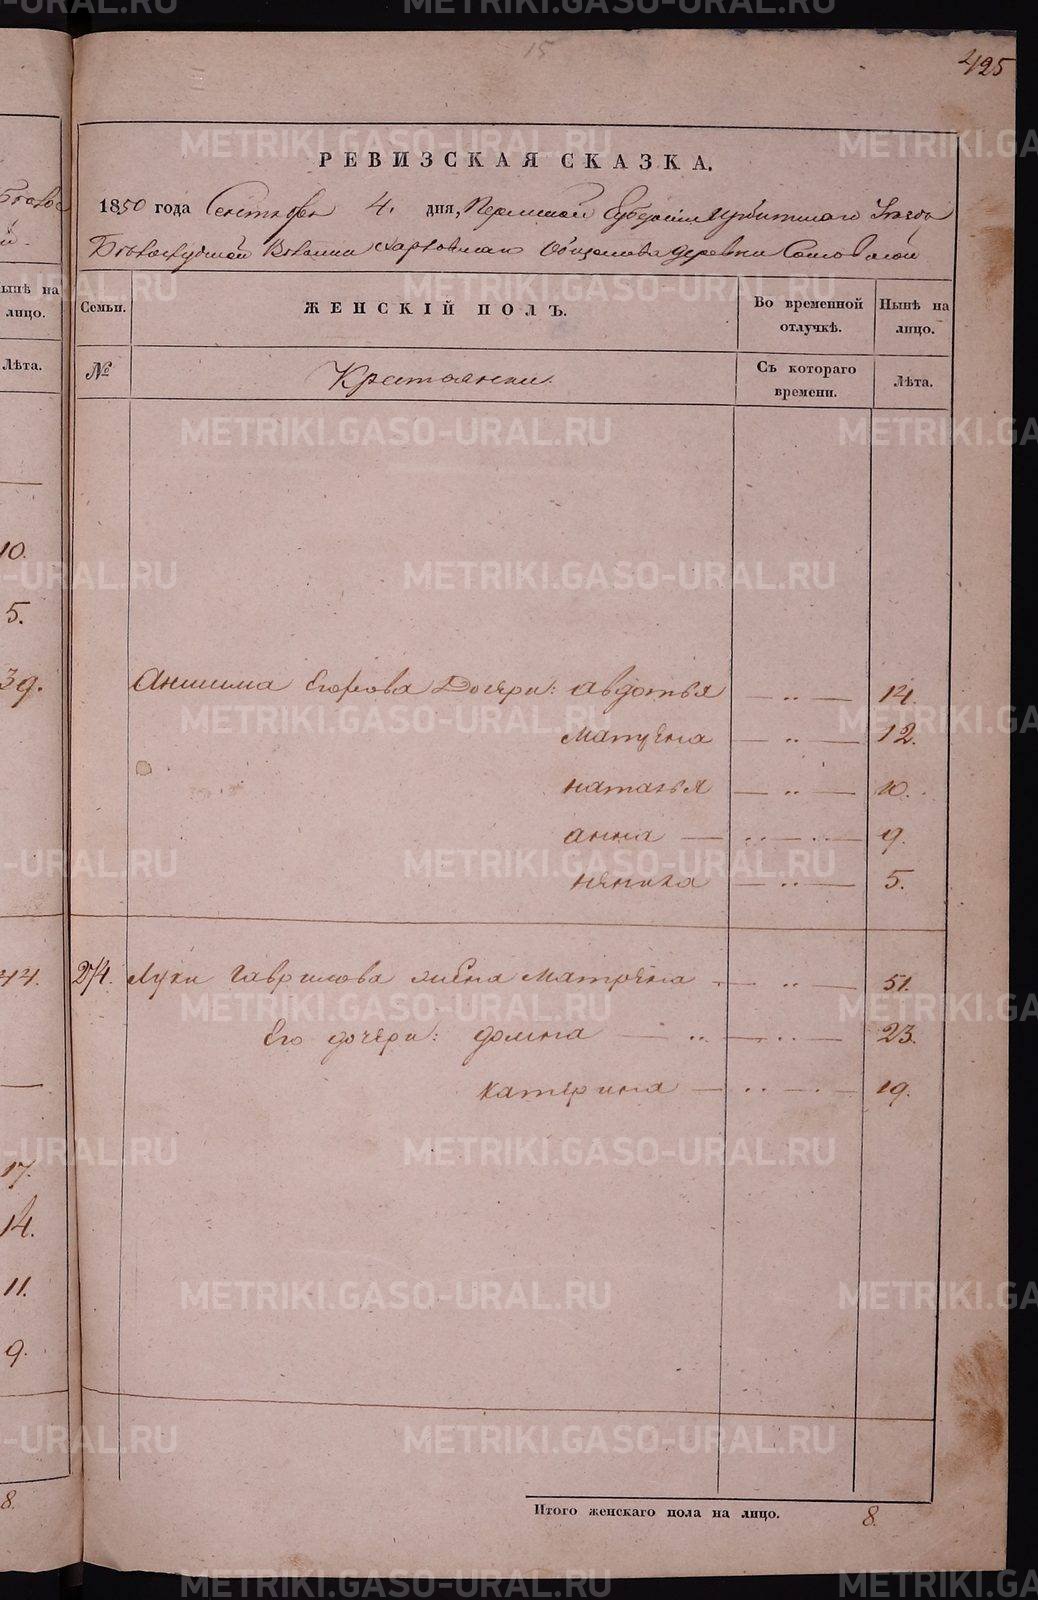 15
425
РЕВИЗСКАЯ СКАЗКА.
1850 года Сентября 4. дня, Пермской Губернии Ирбитскаго Уезда
Белослудской Волости Харловскаго Общества деревни
Семьи.
ЖЕНСКІЙ ПОЛЪ.
Во временной отлучкѣ.
Нынѣ на лицо.
№
Крестьянки.
Съ котораго времени.
Лѣта.
Анисима Егорова Дочери: авдотья — .. — 14.
Матрена — .. — 12.
наталья — .. — 10.
анна — .. — .. — 9.
— .. — 5.
274. Луки Гаврилова жена Матрена — .. — 51.
Его дочери: домна — .. — .. — 23.
катерина — .. — . — 19.
Итого женскаго пола на лицо. 8.
ынѣ на
лицо.
Лѣта.
10.
5.
39.
44.
17.
14.
11.
9.
8.
METRIKI.GASO-URAL.RU